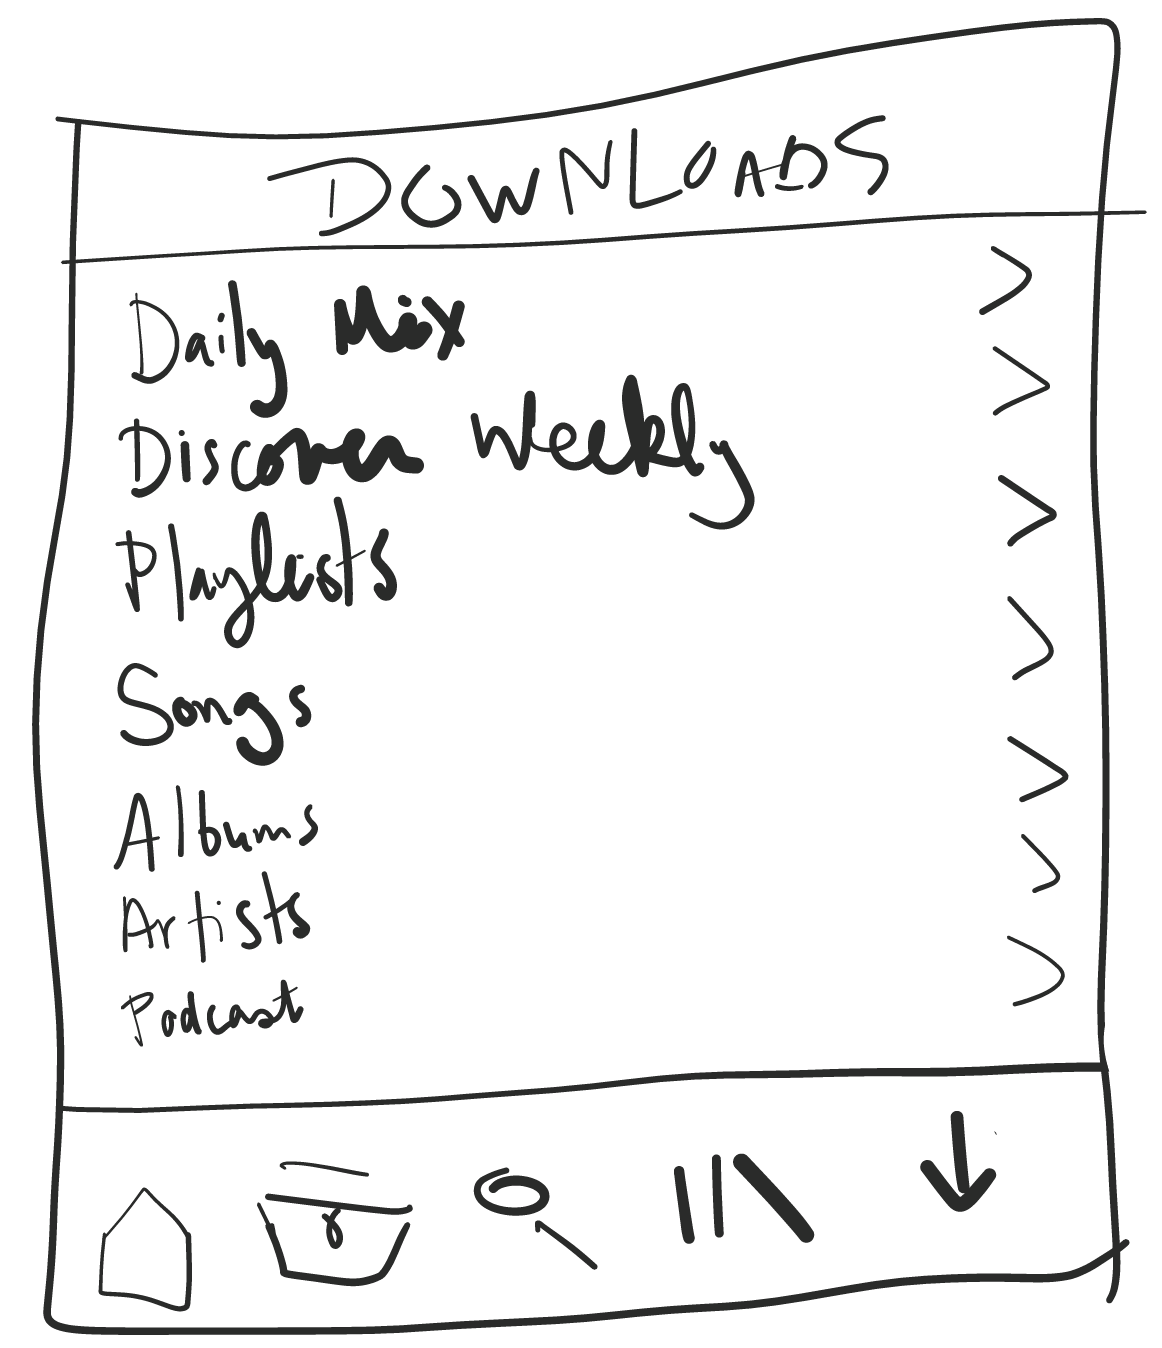 DOWNLOADS
Daily Mix
Discover Weekly
Playlists
Songs
Albums
Artists
Podcast